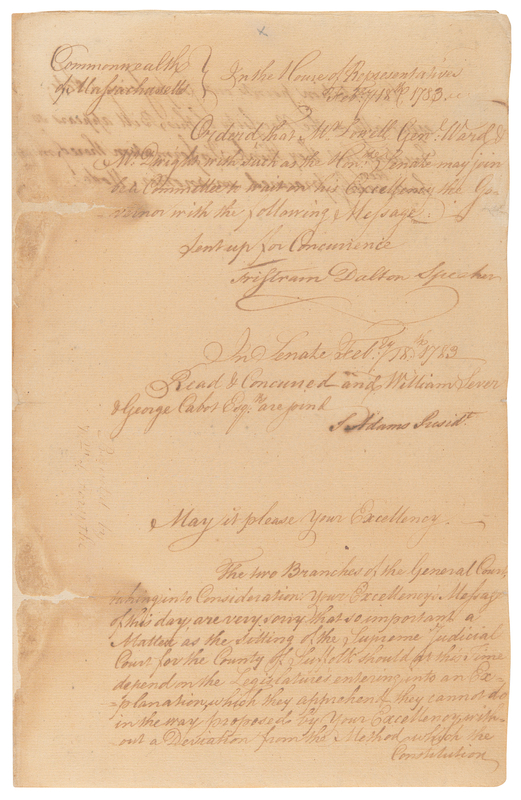 Commonwealth
of Massachusetts } In the House of Representatives
Feby 18th 1783
Ordered that Mr Lowell Genl Ward &
Mr Dwight with such as the Honble Senate may join
be a Committee to wait on his Excellency the Go-
vernor with the following Message.
Sent up for Concurrence
Tristram Dalton Speaker
In Senate Feby 18th 1783
Read & Concurred and William Sever
& George Cabot Esqrs are joined
S Adams Presidt
May it please Your Excellency.
The two Branches of the General Court
taking into Consideration Your Excellency's Message
of this day, are very sorry that so important a
Matter as the setting of the Supreme Judicial
Court for the County of Suffolk should at this Time
depend on the Legislatures entering into an Ex-
-planation, which they apprehend they cannot do
in the way proposed by Your Excellency, with-
out a Deviation from the Method which the
Constitution